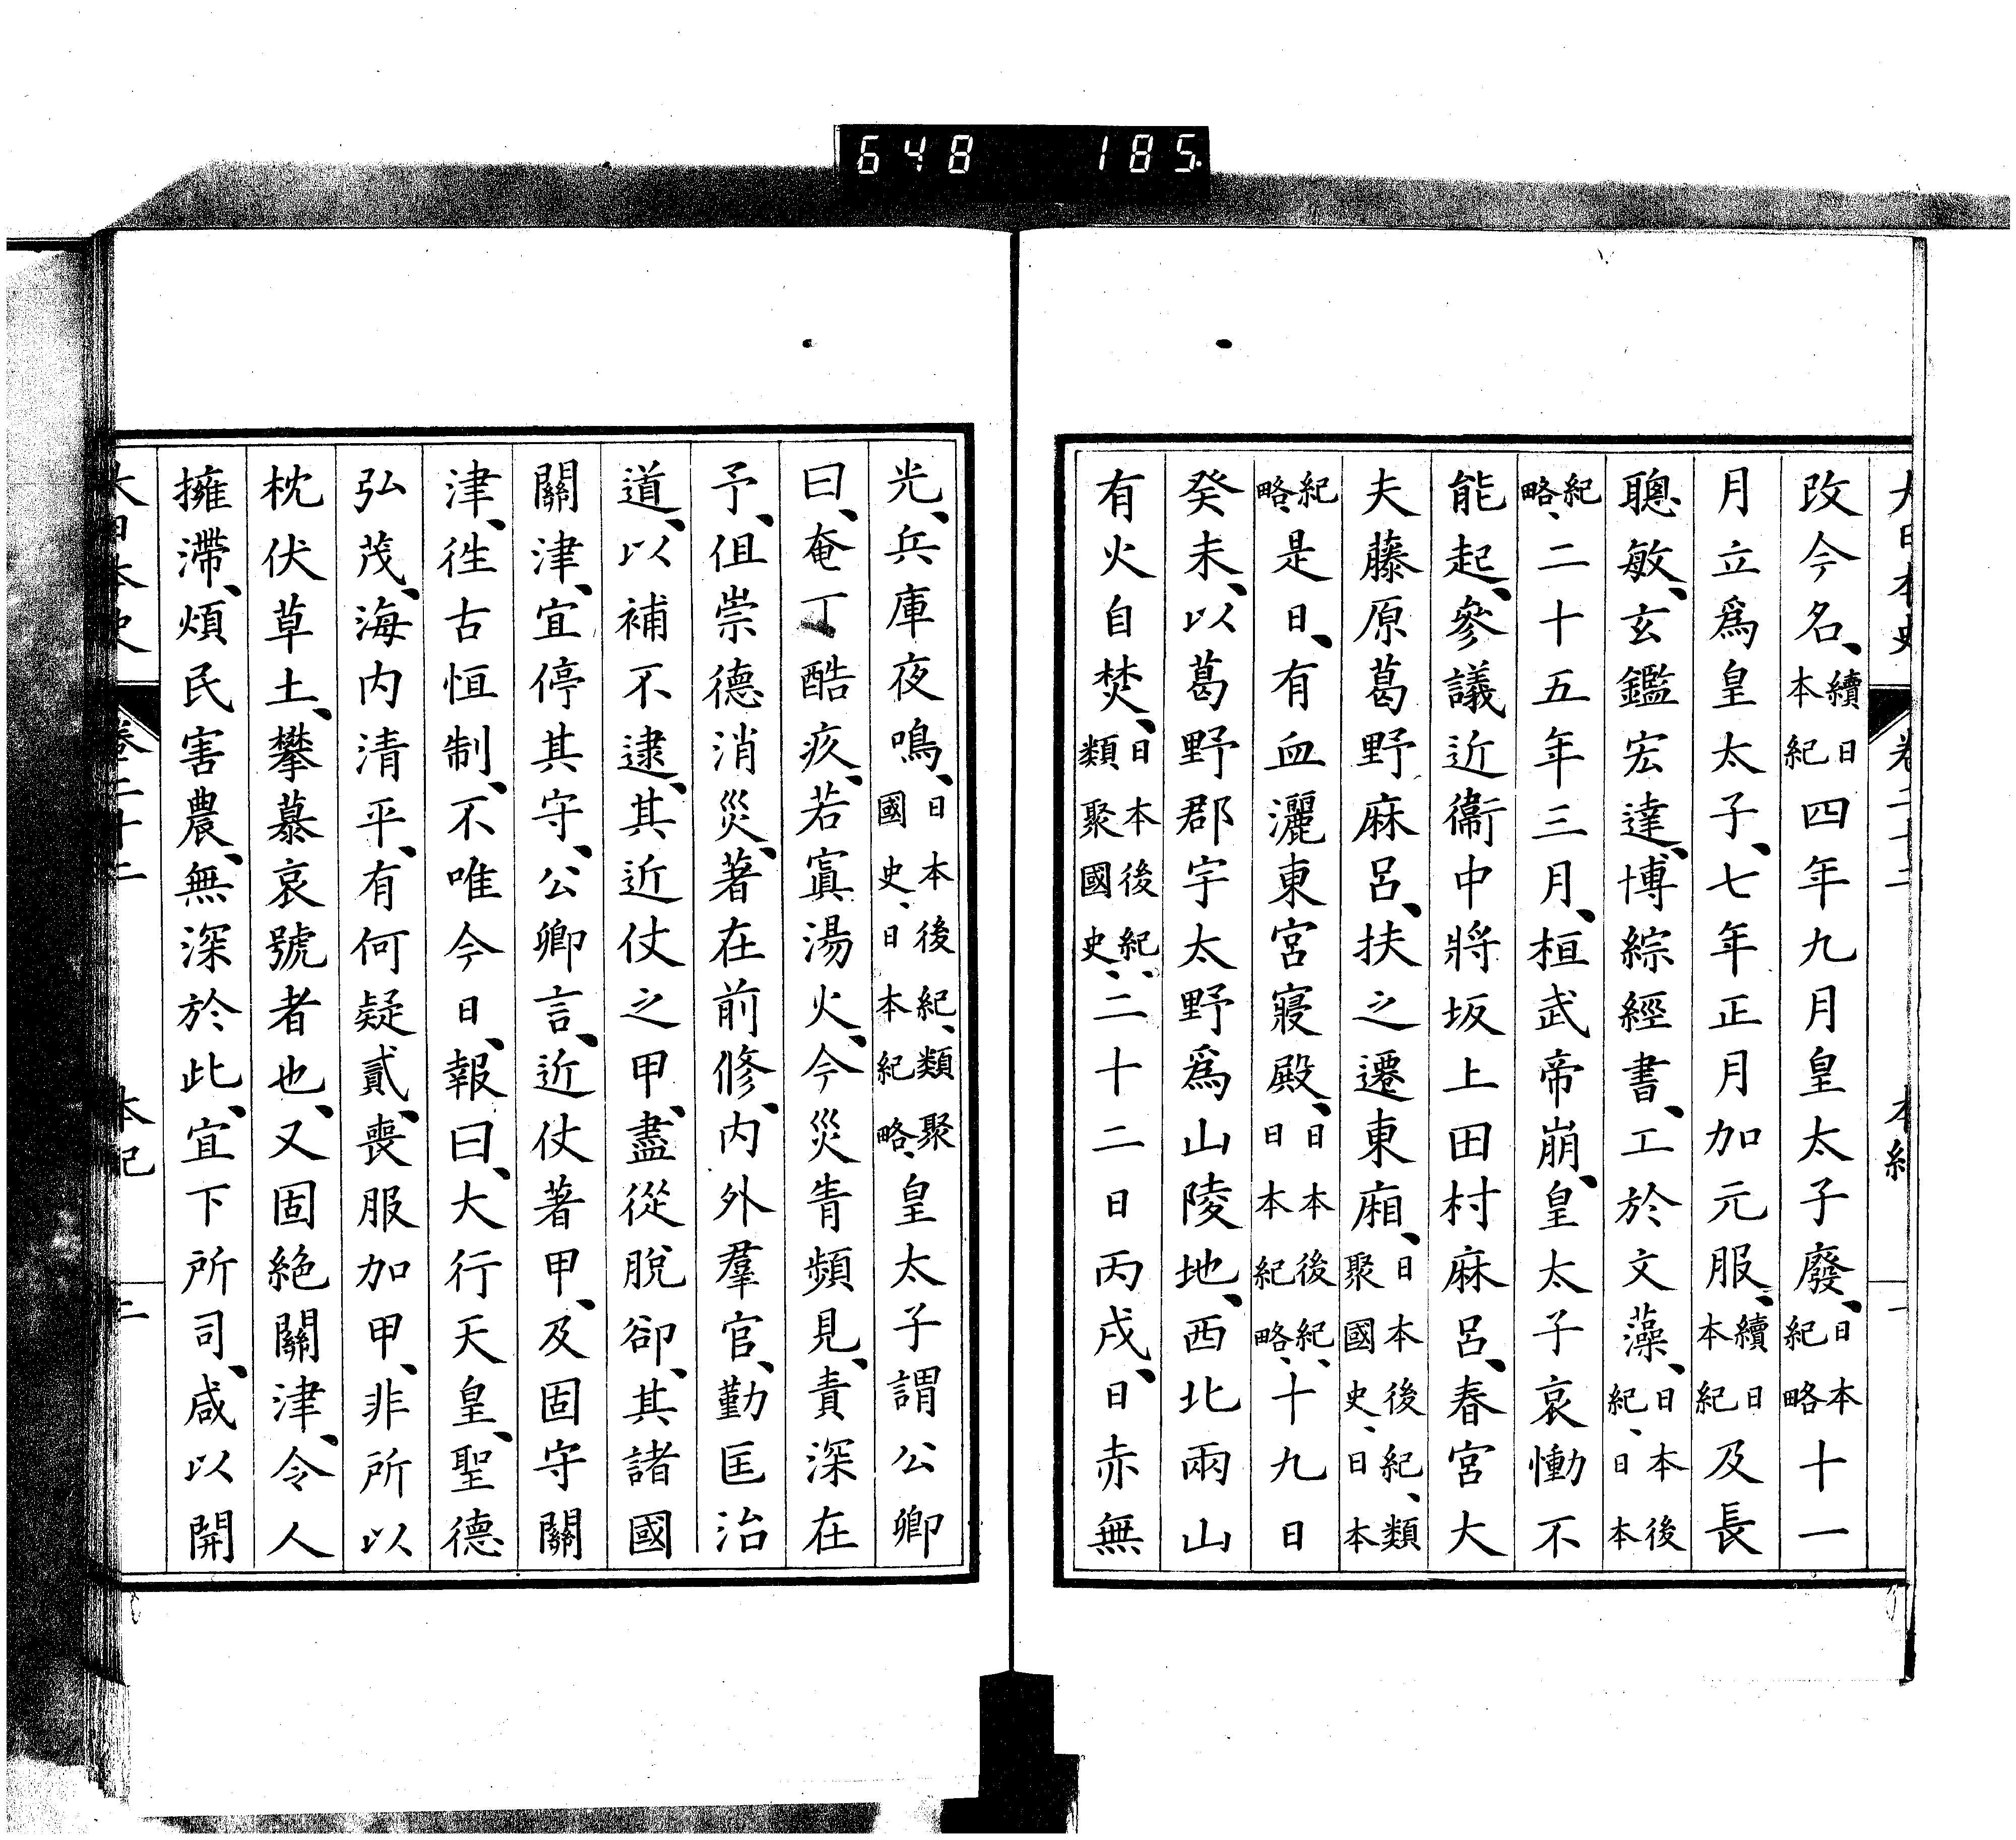 648 185
大日本史 卷二十二 本紀 一
改今名、續日本紀四年九月皇太子廢、日本紀略十一
月立爲皇太子、七年正月加元服、續日本紀及長
聰敏、玄鑑宏達、博綜經書、工於文藻、日本後紀、日本
紀略、二十五年三月、桓武帝崩、皇太子哀慟不
能起、參議近衞中將坂上田村麻呂、春宮大
夫藤原葛野麻呂、扶之遷東廂、日本後紀、類聚國史、日本
紀略、是日、有血灑東宮寢殿、日本後紀、日本紀略、十九日
癸未、以葛野郡宇太野爲山陵地、西北兩山
有火自焚、日本後紀、類聚國史、二十二日丙戌、日赤無
光、兵庫夜鳴、日本後紀、類聚國史、日本紀略、皇太子謂公卿
曰、奄丁酷疚、若寘湯火、今災眚頻見、責深在
予、伹崇德消災、著在前修、内外羣官、勤匡治
道、以補不逮、其近仗之甲、盡從脫卻、其諸國
關津、宜停其守、公卿言、近仗著甲、及固守關
津、徃古恒制、不唯今日、報曰、大行天皇、聖德
弘茂、海内清平、有何疑貳、喪服加甲、非所以
枕伏草土、攀慕哀號者也、又固絶關津、令人
擁滯、煩民害農、無深於此、宜下所司、咸以開
大日本史 卷二十二 本紀 二